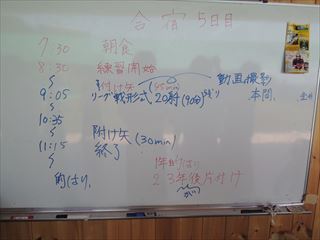 合宿 5日目
7:30 朝食
8:30 練習開始
付け矢 (45min) 動画撮影
9:05 リーグ戦形式 20射 (90分) 本間、
10:35
附け矢 (30min)
11:15 終了
1年 的はり
的はり、 2 3年後片付け